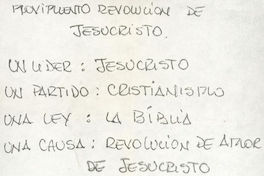 MOVIMIENTO REVOLUCION DE
JESUCRISTO.
UN LIDER : JESUCRISTO
UN PARTIDO : CRISTIANISMO
UNA LEY : LA BÍBLIA
UNA CAUSA : REVOLUCION DE AMOR
DE JESUCRISTO